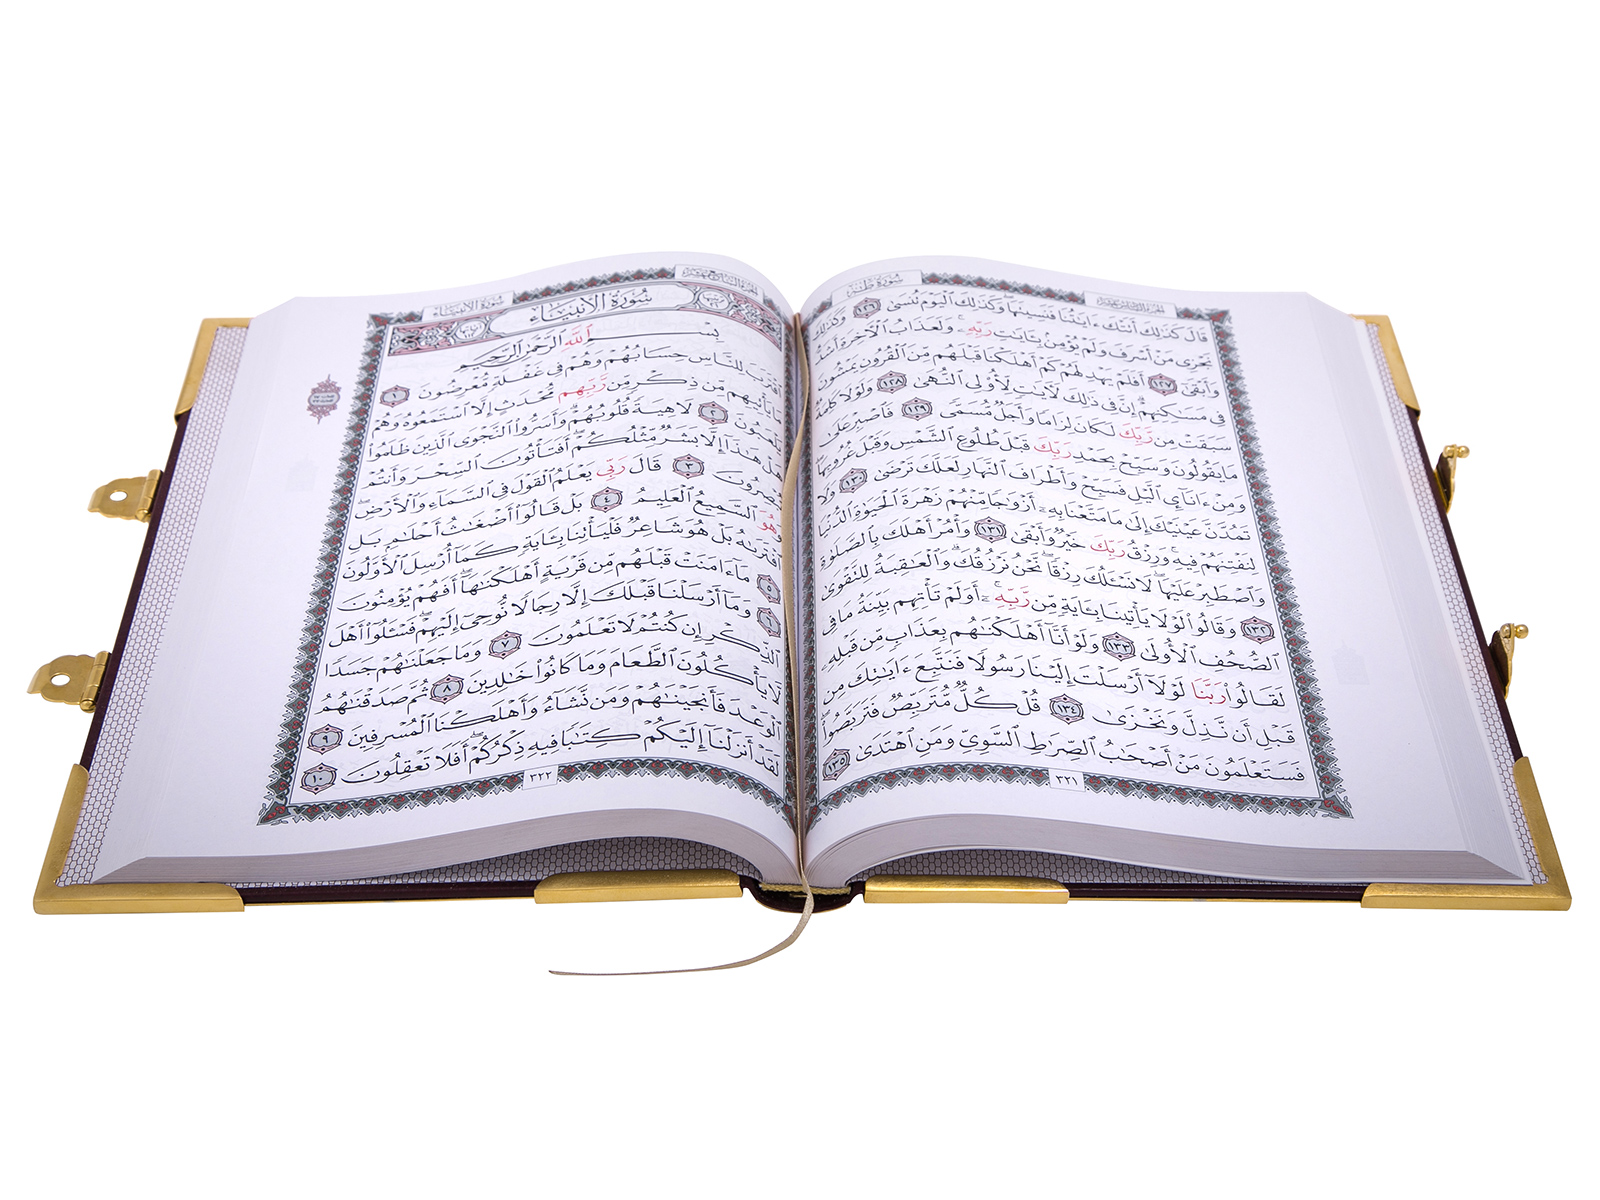 سُورَةُ طٰهٰ
قَالَ كَذَٰلِكَ أَتَتْكَ ءَايَٰتُنَا فَنَسِيتَهَا وَكَذَٰلِكَ ٱلْيَوْمَ تُنسَىٰ ١٢٦ وَكَذَٰلِكَ
نَجْزِى مَنْ أَسْرَفَ وَلَمْ يُؤْمِنۢ بِـَٔايَٰتِ رَبِّهِۦ وَلَعَذَابُ ٱلْءَاخِرَةِ أَشَدُّ
وَأَبْقَىٰٓ ١٢٧ أَفَلَمْ يَهْدِ لَهُمْ كَمْ أَهْلَكْنَا قَبْلَهُم مِّنَ ٱلْقُرُونِ يَمْشُونَ
فِى مَسَٰكِنِهِمْ إِنَّ فِى ذَٰلِكَ لَءَايَٰتٍ لِّأُو۟لِى ٱلنُّهَىٰ ١٢٨ وَلَوْلَا كَلِمَةٌ
سَبَقَتْ مِن رَّبِّكَ لَكَانَ لِزَامًا وَأَجَلٌ مُّسَمًّى ١٢٩ فَٱصْبِرْ عَلَىٰ
مَا يَقُولُونَ وَسَبِّحْ بِحَمْدِ رَبِّكَ قَبْلَ طُلُوعِ ٱلشَّمْسِ وَقَبْلَ غُرُوبِهَا
وَمِنْ ءَانَآئِ ٱلَّيْلِ فَسَبِّحْ وَأَطْرَافَ ٱلنَّهَارِ لَعَلَّكَ تَرْضَىٰ ١٣٠ وَلَا
تَمُدَّنَّ عَيْنَيْكَ إِلَىٰ مَا مَتَّعْنَا بِهِۦٓ أَزْوَٰجًا مِّنْهُمْ زَهْرَةَ ٱلْحَيَوٰةِ ٱلدُّنْيَا
لِنَفْتِنَهُمْ فِيهِ وَرِزْقُ رَبِّكَ خَيْرٌ وَأَبْقَىٰ ١٣١ وَأْمُرْ أَهْلَكَ بِٱلصَّلَوٰةِ
وَٱصْطَبِرْ عَلَيْهَا لَا نَسْـَٔلُكَ رِزْقًا نَّحْنُ نَرْزُقُكَ وَٱلْعَٰقِبَةُ لِلتَّقْوَىٰ
١٣٢ وَقَالُوا۟ لَوْلَا يَأْتِينَا بِـَٔايَةٍ مِّن رَّبِّهِۦٓ أَوَلَمْ تَأْتِهِم بَيِّنَةُ مَا فِى
ٱلصُّحُفِ ٱلْأُولَىٰ ١٣٣ وَلَوْ أَنَّآ أَهْلَكْنَٰهُم بِعَذَابٍ مِّن قَبْلِهِۦ
لَقَالُوا۟ رَبَّنَا لَوْلَآ أَرْسَلْتَ إِلَيْنَا رَسُولًا فَنَتَّبِعَ ءَايَٰتِكَ مِن
قَبْلِ أَن نَّذِلَّ وَنَخْزَىٰ ١٣٤ قُلْ كُلٌّ مُّتَرَبِّصٌ فَتَرَبَّصُوا۟
فَسَتَعْلَمُونَ مَنْ أَصْحَٰبُ ٱلصِّرَٰطِ ٱلسَّوِىِّ وَمَنِ ٱهْتَدَىٰ ١٣٥
٣٢١
سُورَةُ الأَنبِيَاء
سُورَةُ الأَنبِيَاء
بِسْمِ ٱللَّهِ ٱلرَّحْمَٰنِ ٱلرَّحِيمِ
ٱقْتَرَبَ لِلنَّاسِ حِسَابُهُمْ وَهُمْ فِى غَفْلَةٍ مُّعْرِضُونَ ١
مَا يَأْتِيهِم مِّن ذِكْرٍ مِّن رَّبِّهِم مُّحْدَثٍ إِلَّا ٱسْتَمَعُوهُ وَهُمْ
يَلْعَبُونَ ٢ لَاهِيَةً قُلُوبُهُمْ وَأَسَرُّوا۟ ٱلنَّجْوَى ٱلَّذِينَ ظَلَمُوا۟
هَلْ هَٰذَآ إِلَّا بَشَرٌ مِّثْلُكُمْ أَفَتَأْتُونَ ٱلسِّحْرَ وَأَنتُمْ
تُبْصِرُونَ ٣ قَالَ رَبِّى يَعْلَمُ ٱلْقَوْلَ فِى ٱلسَّمَآءِ وَٱلْأَرْضِ
وَهُوَ ٱلسَّمِيعُ ٱلْعَلِيمُ ٤ بَلْ قَالُوٓا۟ أَضْغَٰثُ أَحْلَٰمٍ بَلِ
ٱفْتَرَىٰهُ بَلْ هُوَ شَاعِرٌ فَلْيَأْتِنَا بِـَٔايَةٍ كَمَآ أُرْسِلَ ٱلْأَوَّلُونَ
٥ مَآ ءَامَنَتْ قَبْلَهُم مِّن قَرْيَةٍ أَهْلَكْنَٰهَآ أَفَهُمْ يُؤْمِنُونَ
٦ وَمَآ أَرْسَلْنَا قَبْلَكَ إِلَّا رِجَالًا نُّوحِىٓ إِلَيْهِمْ فَسْـَٔلُوٓا۟ أَهْلَ
ٱلذِّكْرِ إِن كُنتُمْ لَا تَعْلَمُونَ ٧ وَمَا جَعَلْنَٰهُمْ جَسَدًا
لَّا يَأْكُلُونَ ٱلطَّعَامَ وَمَا كَانُوا۟ خَٰلِدِينَ ٨ ثُمَّ صَدَقْنَٰهُمُ
ٱلْوَعْدَ فَأَنجَيْنَٰهُمْ وَمَن نَّشَآءُ وَأَهْلَكْنَا ٱلْمُسْرِفِينَ ٩
لَقَدْ أَنزَلْنَآ إِلَيْكُمْ كِتَٰبًا فِيهِ ذِكْرُكُمْ أَفَلَا تَعْقِلُونَ ١٠
٣٢٢